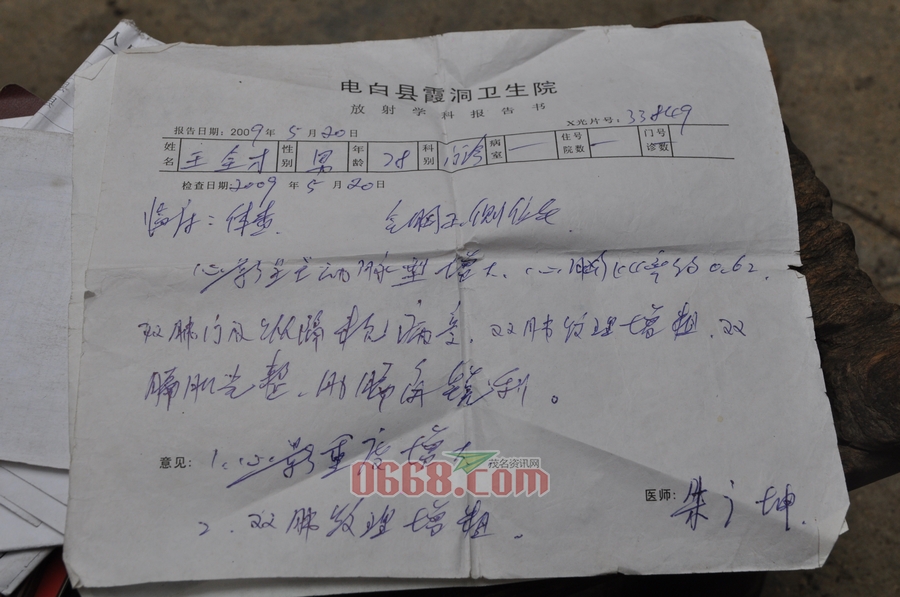 电白县霞洞卫生院
放射学科报告书
X光片号: 33849
报告日期: 2009年5月20日
姓名 王全才 性别 男 年龄 28 科别 门诊 病室 一 住院号数 一 门诊号数 一
检查日期 2009年5月20日
临床: 体查 全胸正侧位片
心影呈主动脉型增大、心胸比率约0.62.
双肺门及纵隔未见病变. 双肺纹理增粗. 双
膈肌完整、肋膈角锐利。
意见: 1. 心影重度增大
茂名资讯网
0668.com
2. 双肺纹理增粗。
医师: 朱广坤.